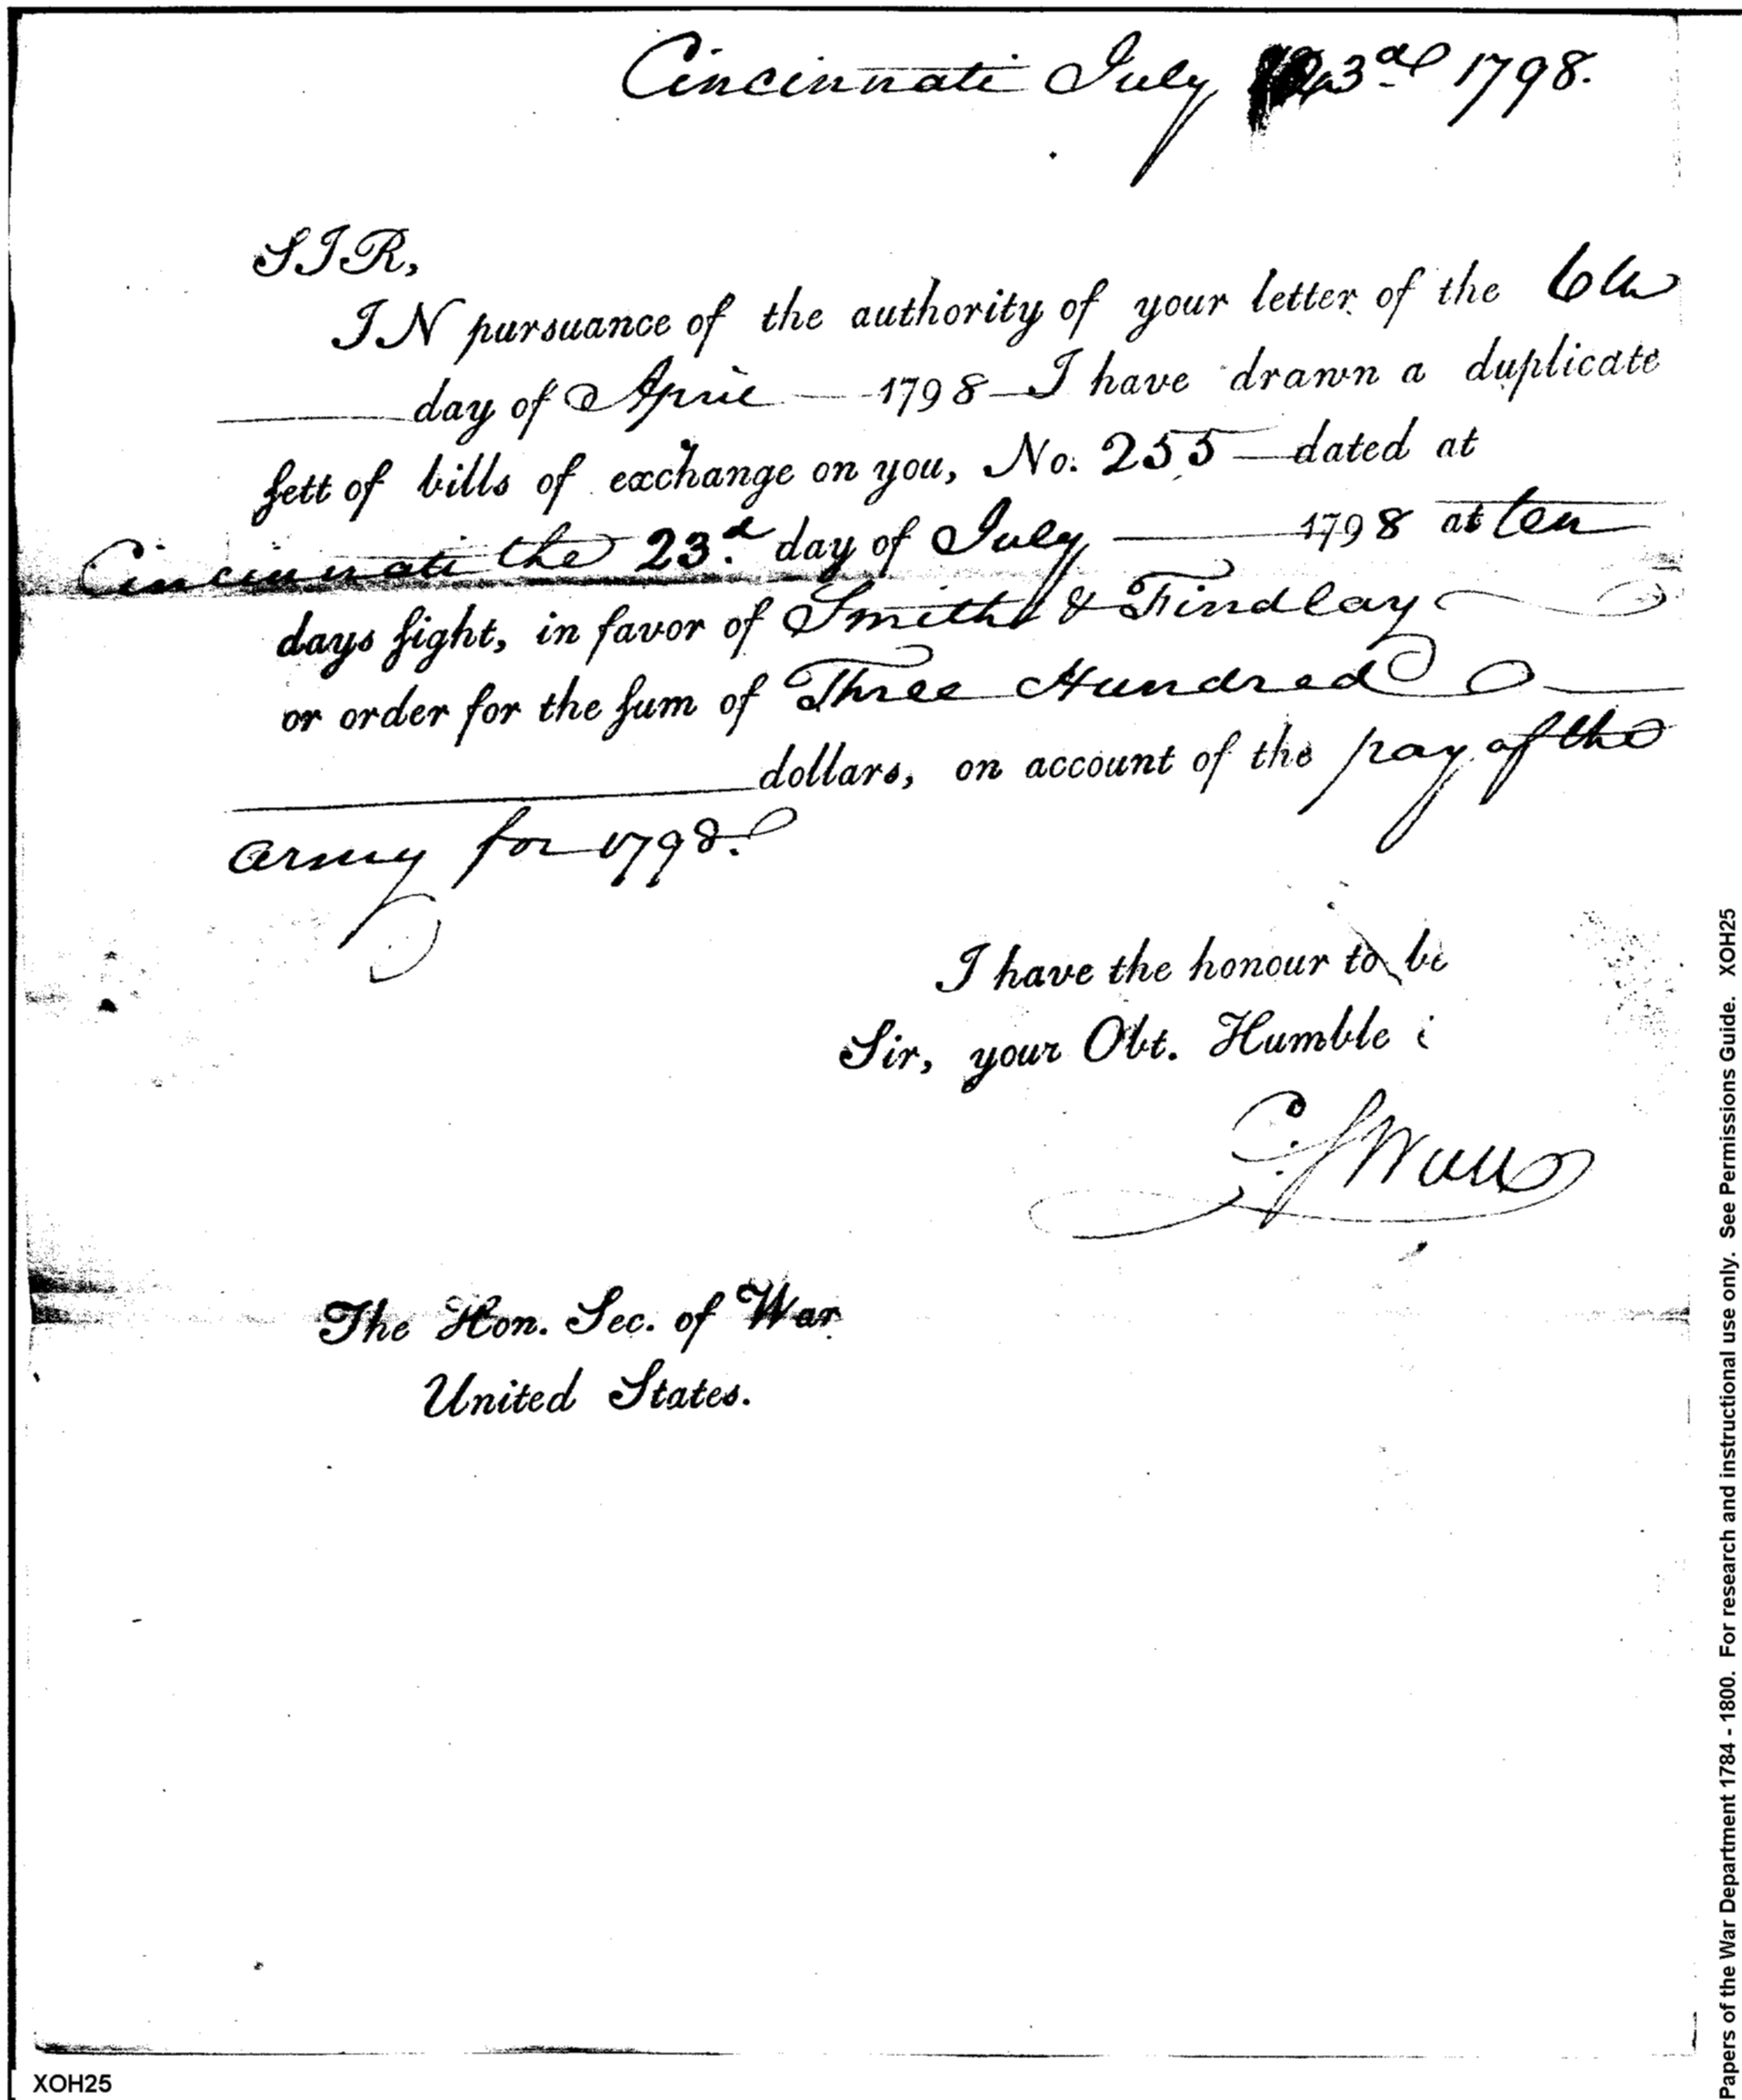 Cincinnati July 23d 1798.
SIR,
IN pursuance of the authority of your letter of the 6th
day of April 1798 I have drawn a duplicate
sett of bills of exchange on you, No. 255 dated at
Cincinnati the 23.d day of July 1798 at ten
days sight, in favor of Smith & Findlay
or order for the sum of Three Hundred
dollars, on account of the pay of the
army for 1798.
I have the honour to be
Sir, your Obt. Humble
C. Swan
The Hon. Sec. of War
United States.
XOH25
Papers of the War Department 1784 - 1800. For research and instructional use only. See Permissions Guide. XOH25